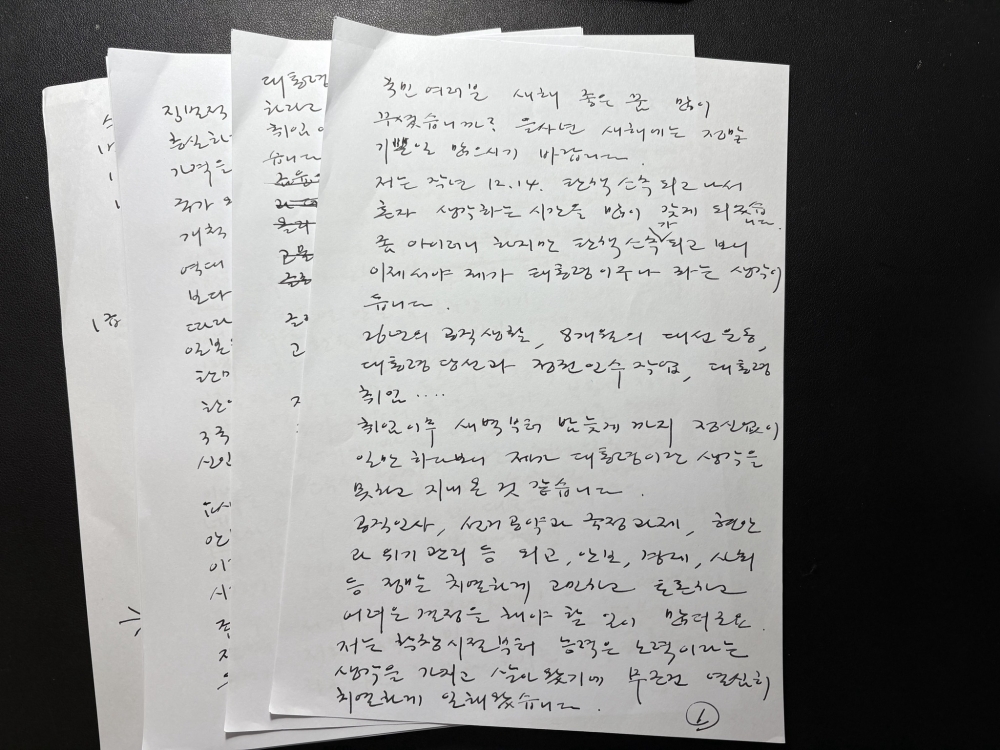 국민 여러분 새해 좋은 꿈 많이
꾸셨습니까? 을사년 새해에는 정말
기쁜일 많으시기 바랍니다.
저는 작년 12.14. 탄핵소추 되고 나서
혼자 생각하는 시간을 많이 갖게 되었습니다.
좀 아이러니 하지만 탄핵소추가 되고 보니
이제서야 제가 대통령이구나 라는 생각이
듭니다.
26년의 공직생활, 8개월의 대선 운동,
대통령 당선과 정권 인수 작업, 대통령
취임 ····
취임이후 새벽부터 밤늦게 까지 정신없이
일만 하다보니 제가 대통령이란 생각을
못하고 지내온 것 같습니다.
공직인사, 선거공약과 국정과제, 현안
과 위기 관리 등 외교, 안보, 경제, 사회
등 정말 치열하게 고민하고 토론하고
어려운 결정을 해야 할 일이 많더군요.
저는 학창시절부터 능력은 노력이라는
생각을 가지고 살아왔기에 무조건 열심히
치열하게 일해왔습니다.
1
대통령
하라고
취임
습니다
고
직무적
충실하
가격은
국가
개척
역대
보다
따라
일본
한미
3국